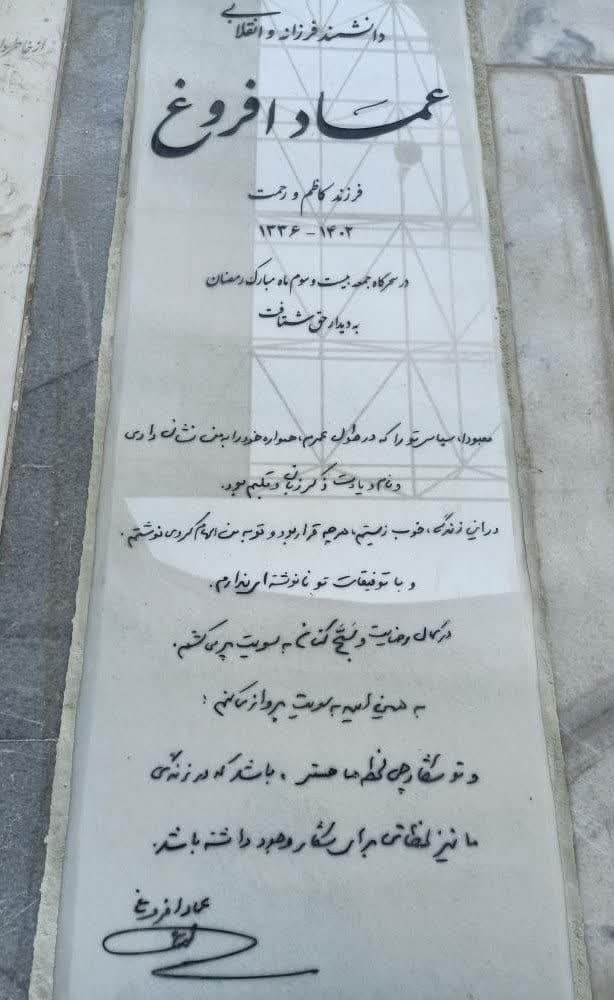 دانشمند فرزانه و انقلابی
عماد افروغ
فرزند کاظم و رحمت
۱۳۳۶ - ۱۴۰۲
در سحرگاه جمعه بیست و سوم ماه مبارک رمضان
به دیدار حق شتافت
معبودا، سپاس تو را که در طول عمرم، همواره خود را به من نشان دادی
و نام و یادت ذکر زبان و قلبم بود.
در این زندگی، خوب زیستم، هر چه قرار بود و تو به من الهام کردی نوشتم.
و با توفیقات تو نانوشته‌ای ندارم.
در کمال رضایت و تسبیح کنان به سویت پر می کشم.
به همین امید به سویت پرواز می کنم:
و تو شکارچی لحظه ها هستی، باشد که در زندگی
ما نیز لحظاتی برای شکار وجود داشته باشد.
عماد افروغ
از خاطر